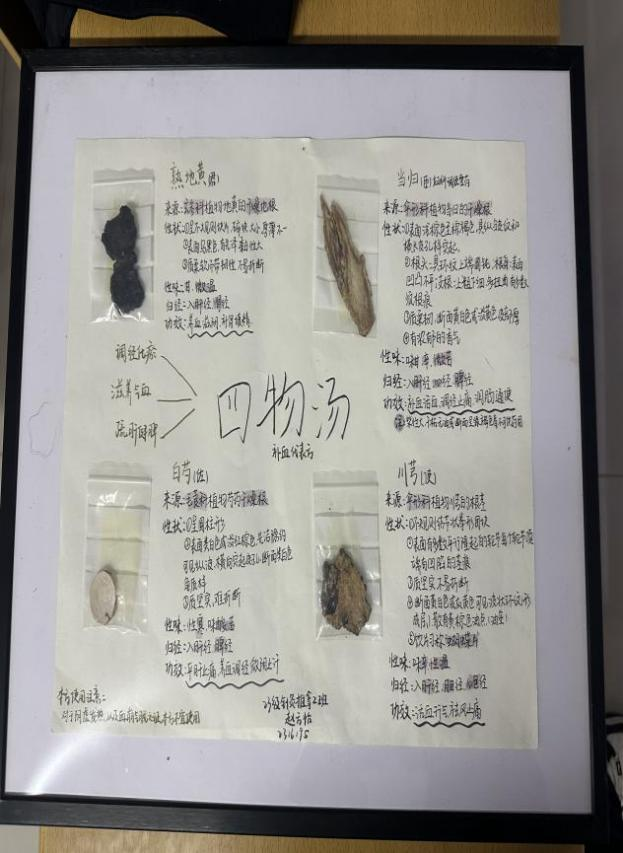 熟地黄(君)
来源:玄参科植物地黄的干燥块根
性状:①呈不规则块片、碎块大小、厚薄不一
②表面乌黑色,有光泽黏性大
③质柔软而带韧性不易折断
性味:甘、微温
归经:入肝经、肾经
功效:养血滋阴,补肾填精
当归(臣)
来源:伞形科植物当归的干燥根
性状:①表面
②根头:具环纹上端膨钝,根
凹凸不平支根:上粗下细,多扭曲有少数
须根痕
③质柔韧,断面黄白色或淡黄色
④有浓郁的香气
性味:味甘、辛、微苦
归经:入肝经 心经 脾经
功效:补血活血,调经止痛,润肠通便
调经化瘀
滋养气血
疏肝健脾
四物汤
补血代表方
白芍(佐)
来源:毛茛科植物芍药干燥根
性状:①呈圆柱形
②表面类白色或淡红棕色,光洁隐约
可见纵纹、横向突起皮孔,断面类白色
角质样
③质坚实,难折断
性味:性寒、味
归经:入肝经、脾经
功效:平肝止痛,养血调经敛阴止汗
川芎(使)
来源:伞形科植物川芎的根茎
性状:①不规则结节状拳形团块
②表面有多数平行隆起的轮节每个轮节顶
端有凹陷的茎痕
③质坚实不易折断
④断面黄白色或灰黄色可见波状环纹(形
成层)
性味:味辛性温
归经:入肝经、胆经
功效:活血行气 祛风止痛
本方使用注意:
23级针灸推拿2班